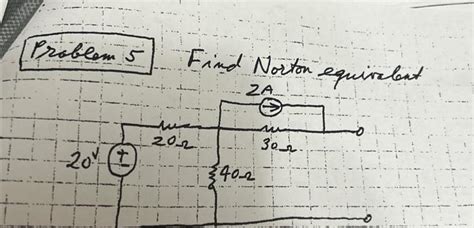 Problem 5
Find Norton equivalent
2A
20Ω
30Ω
20V
+
40Ω